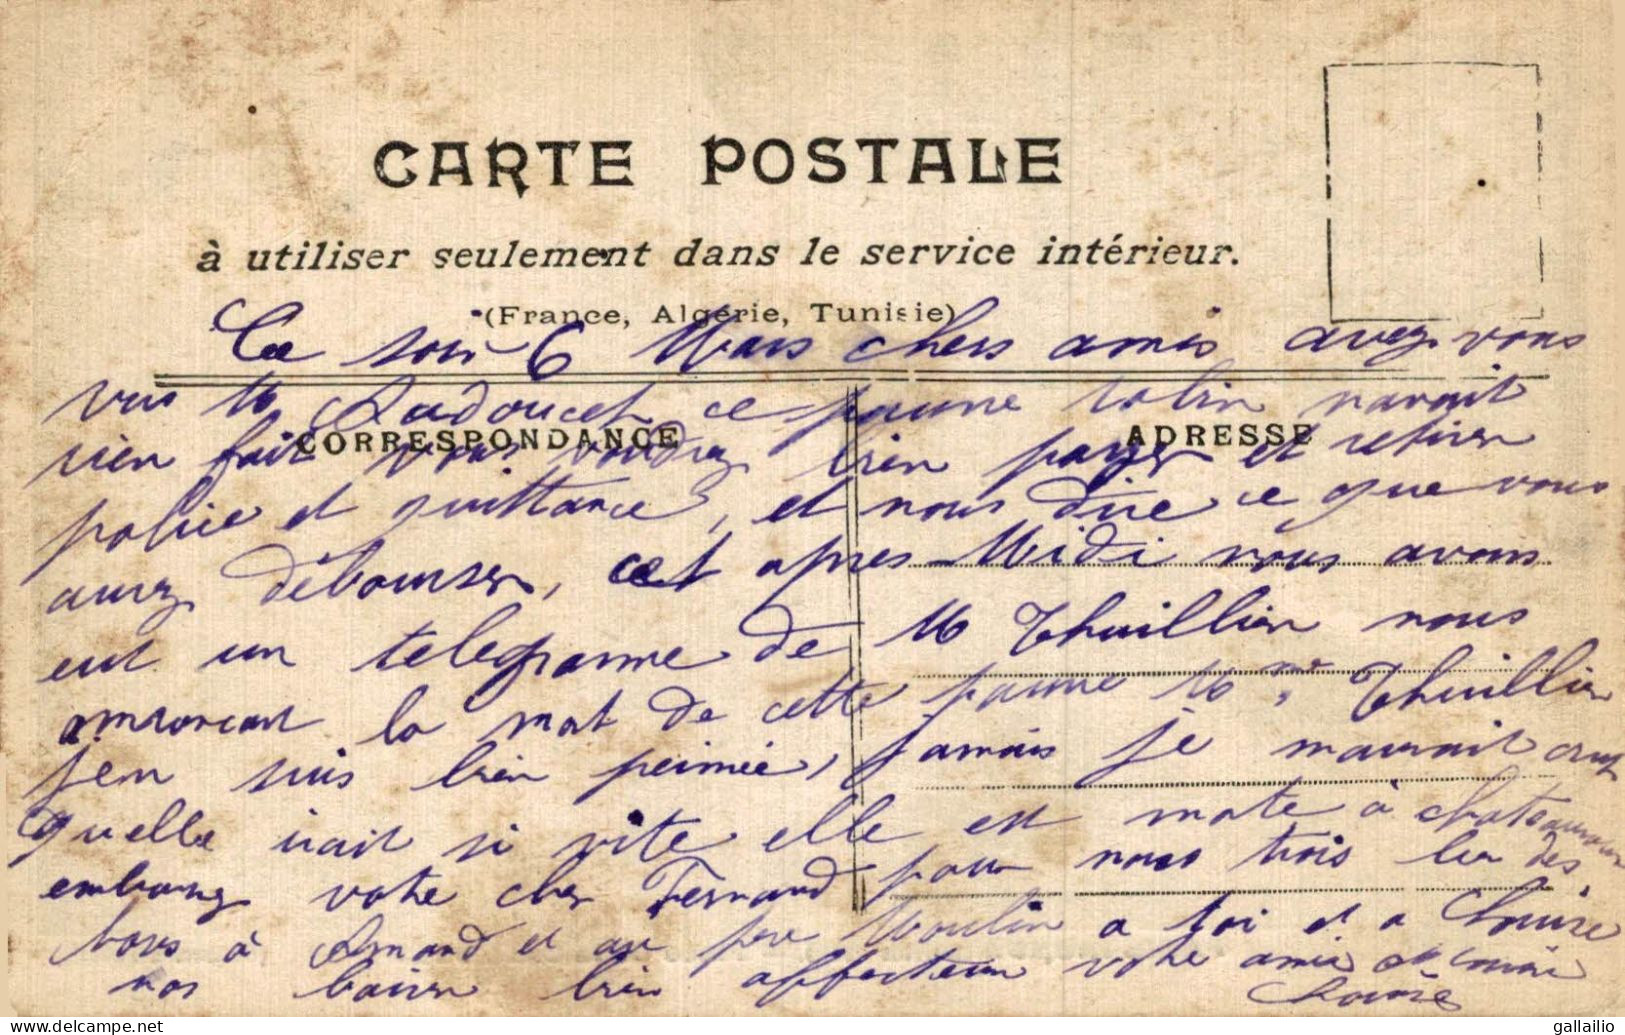 CARTE POSTALE
à utiliser seulement dans le service intérieur.
(France, Algérie, Tunisie)
Ce soir 6 Mars chers amis avez vous
vus M Ladoucet ce jeune robin navait
CORRESPONDANCE
ADRESSE
rien fait vous voudrez bien payer et retirer
police et quittance, et nous dire ce que vous
aurez débourser, cet apres Midi nous avons
eut un telegramme de M Thuillier nous
annoncant la mort de cette pauvre Mme Thuillier
jen suis bien peinnée, jamais je maurait cru
quelle irait si vite elle est morte à Chateauroux
embrassez votre cher Fernand pour nous trois bien des
choses à Armand et au pere Moulin a toi et a Louise
nos baiser bien affectueux votre amie
gallailio